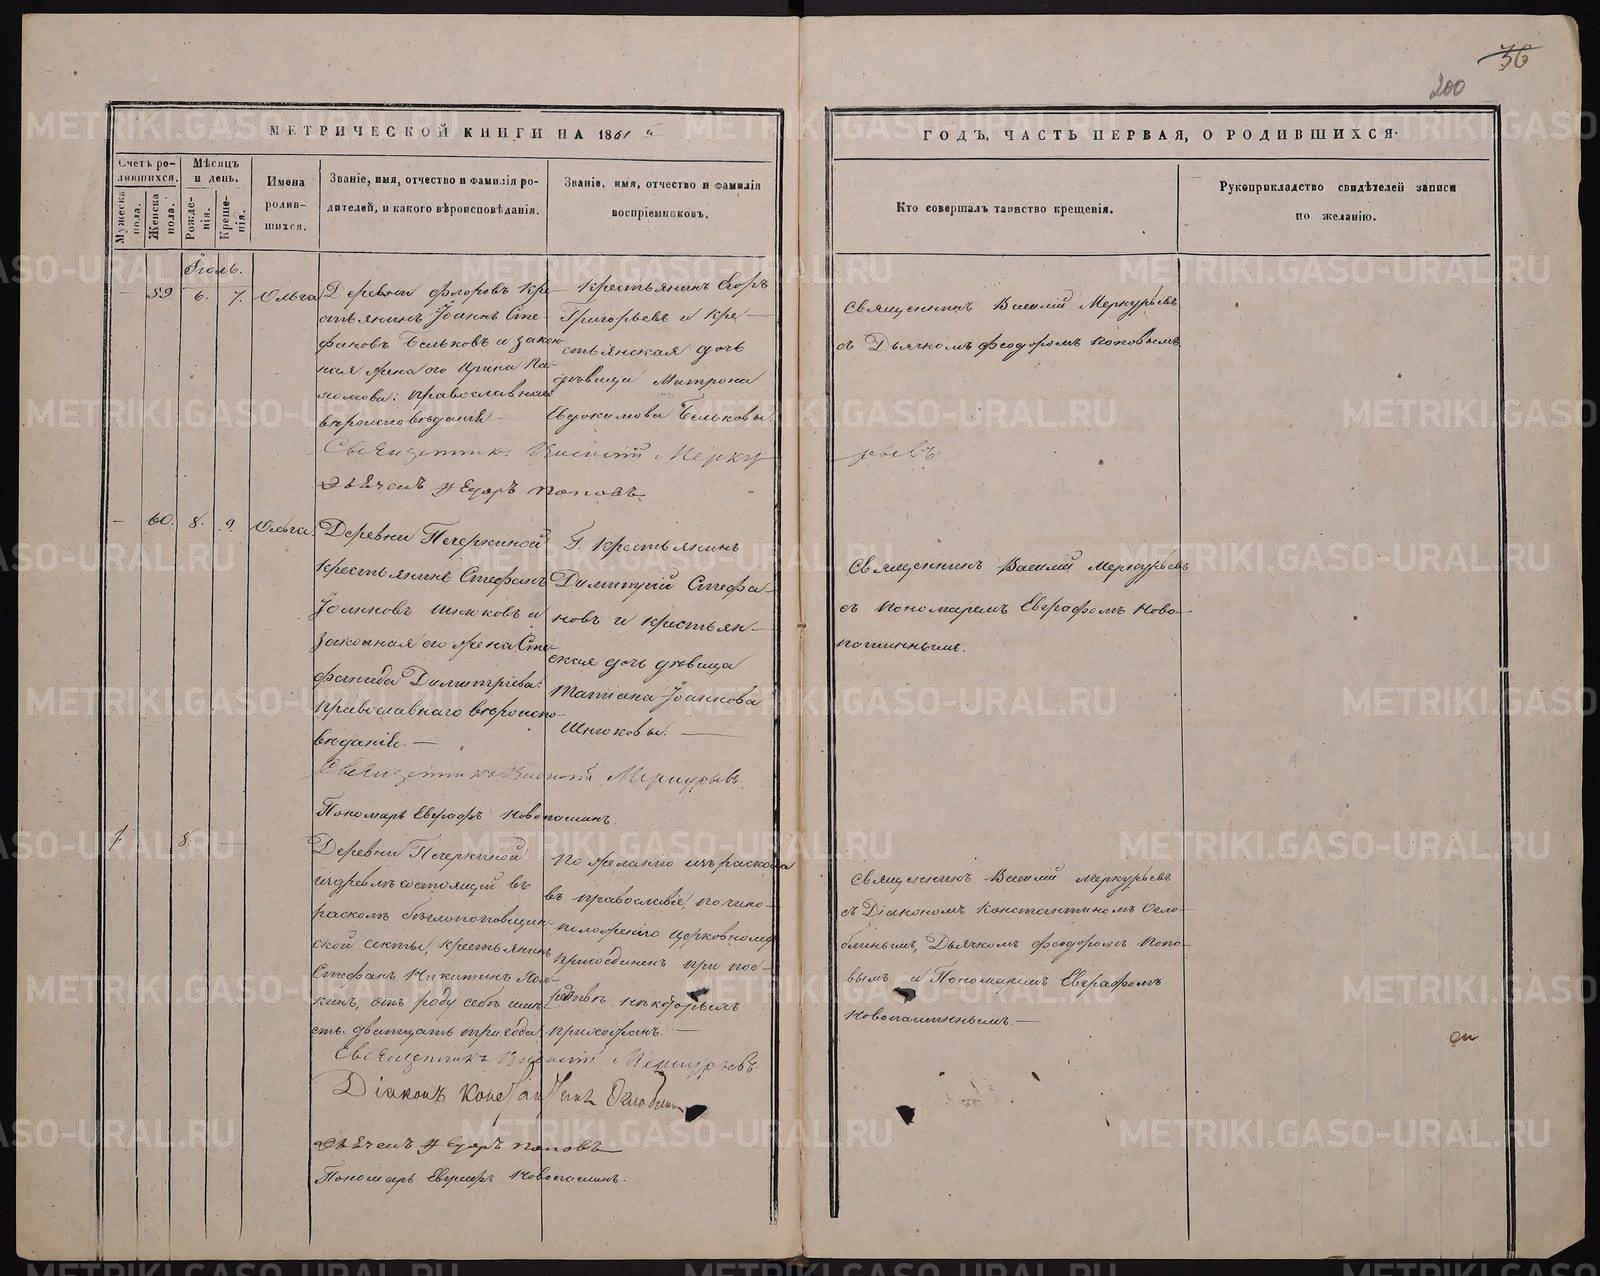 36
200
МЕТРИЧЕСКОЙ КНИГИ НА 1861 й
ГОДЪ, ЧАСТЬ ПЕРВАЯ, О РОДИВШИХСЯ.
Счетъ ро-
дившихся.
Мужеска пола.
Женска пола.
Мѣсяцъ
и день.
Рожде-
нія.
Креще-
нія.
Имена
родив-
шихся.
Званіе, имя, отчество и фамилія ро-
дителей, и какого вѣроисповѣданія.
Званіе, имя, отчество и фамилія
воспріемниковъ.
Кто совершалъ таинство крещенія.
Рукоприкладство свидѣтелей записи
по желанію.
Іюль.
59. 6. 7. Ольга
Деревни Флоровъ Кре-
стьянинъ Іоаннъ Сте-
фановъ Бельковъ и закон-
ная жена его Ирина
православнаго
вѣроисповѣданія
Крестьянинъ Егоръ
Григорьевъ и кре-
стьянская дочь
дѣвица Матрона
Евдокимова Бельковы.
Священникъ Василій Меркурьевъ
съ Дьячкомъ Феодоромъ Поповымъ
Священникъ Василій Меркурьевъ
Дьячекъ Федоръ Поповъ
60. 8. 9. Ольга.
Деревни Печеркиной
крестьянинъ Стефанъ
Іоанновъ Шнюковъ и
законная его жена Сте-
фанида Димитріева:
православнаго вѣроиспо-
вѣданія.
Г. Крестьянинъ
Димитрій Стефа-
новъ и крестьян-
ская дочь дѣвица
Татіана Іоаннова
Шнюковы.
Священникъ Василій Меркурьевъ
съ Пономаремъ Евграфомъ Ново-
пашиннымъ.
Священникъ Василій Меркурьевъ.
Пономарь Евграфъ Новопашинъ.
1 8
Деревни Печеркиной
издревлѣ состоящій въ
расколѣ бѣглопоповщин-
ской секты, крестьянинъ
Стефанъ Никитинъ
отъ роду себѣ имѣ-
етъ двадцать три года
По желанію изъ раскола
въ православіе, по чино-
положенію церковному
присоединенъ при пос-
редствѣ нѣкоторыхъ
прихожанъ.
Священникъ Василій Меркурьевъ
съ Діакономъ Константиномъ Огло-
блинымъ, Дьячкомъ Феодоромъ Попо-
вымъ и Пономаремъ Евграфомъ
Новопашиннымъ.
Священникъ Василій Меркурьевъ.
Діаконъ Константинъ Оглоблинъ
Дьячекъ Федоръ Поповъ
Пономарь Евграфъ Новопашинъ.
METRIKI.GASO-URAL.RU